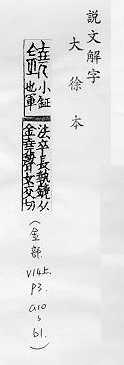 說文解字
大徐本
鐃 小鉦
也軍
法卒長執鐃从
金堯聲女交切
(金部.
V14上.
P3.
a10
s
b1.)